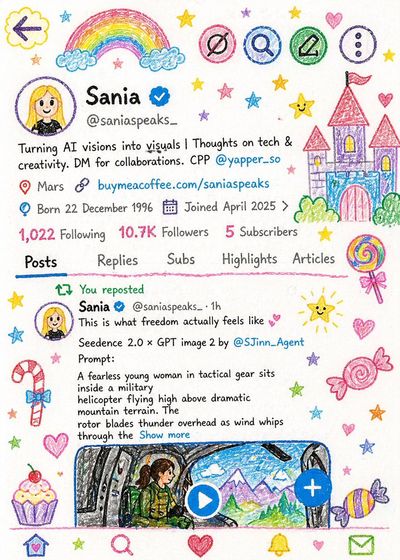 Sania
@saniaspeaks_
Turning AI visions into visuals | Thoughts on tech &
creativity. DM for collaborations. CPP @yapper_so
Mars buymeacoffee.com/saniaspeaks
Born 22 December 1996 Joined April 2025
1,022 Following 10.7K Followers 5 Subscribers
Posts Replies Subs Highlights Articles
You reposted
Sania @saniaspeaks_ · 1h
This is what freedom actually feels like
Seedence 2.0 × GPT image 2 by @SJinn_Agent
Prompt:
A fearless young woman in tactical gear sits
inside a military
helicopter flying high above dramatic
mountain terrain. The
rotor blades thunder overhead as wind whips
through the Show more